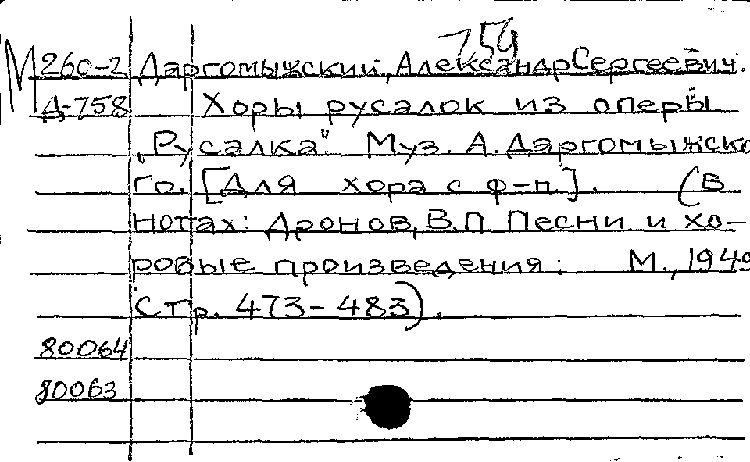 759
М 26с-2 Даргомыжский, Александр Сергеевич.
Д-758 Хоры русалок из оперы
„Русалка" Муз. А. Даргомыжско
го. [Для хора с ф-п.]. (В
нотах: Дронов, В.П. Песни и хо-
ровые произведения. М., 1949
Стр. 473-483).
80064
80063